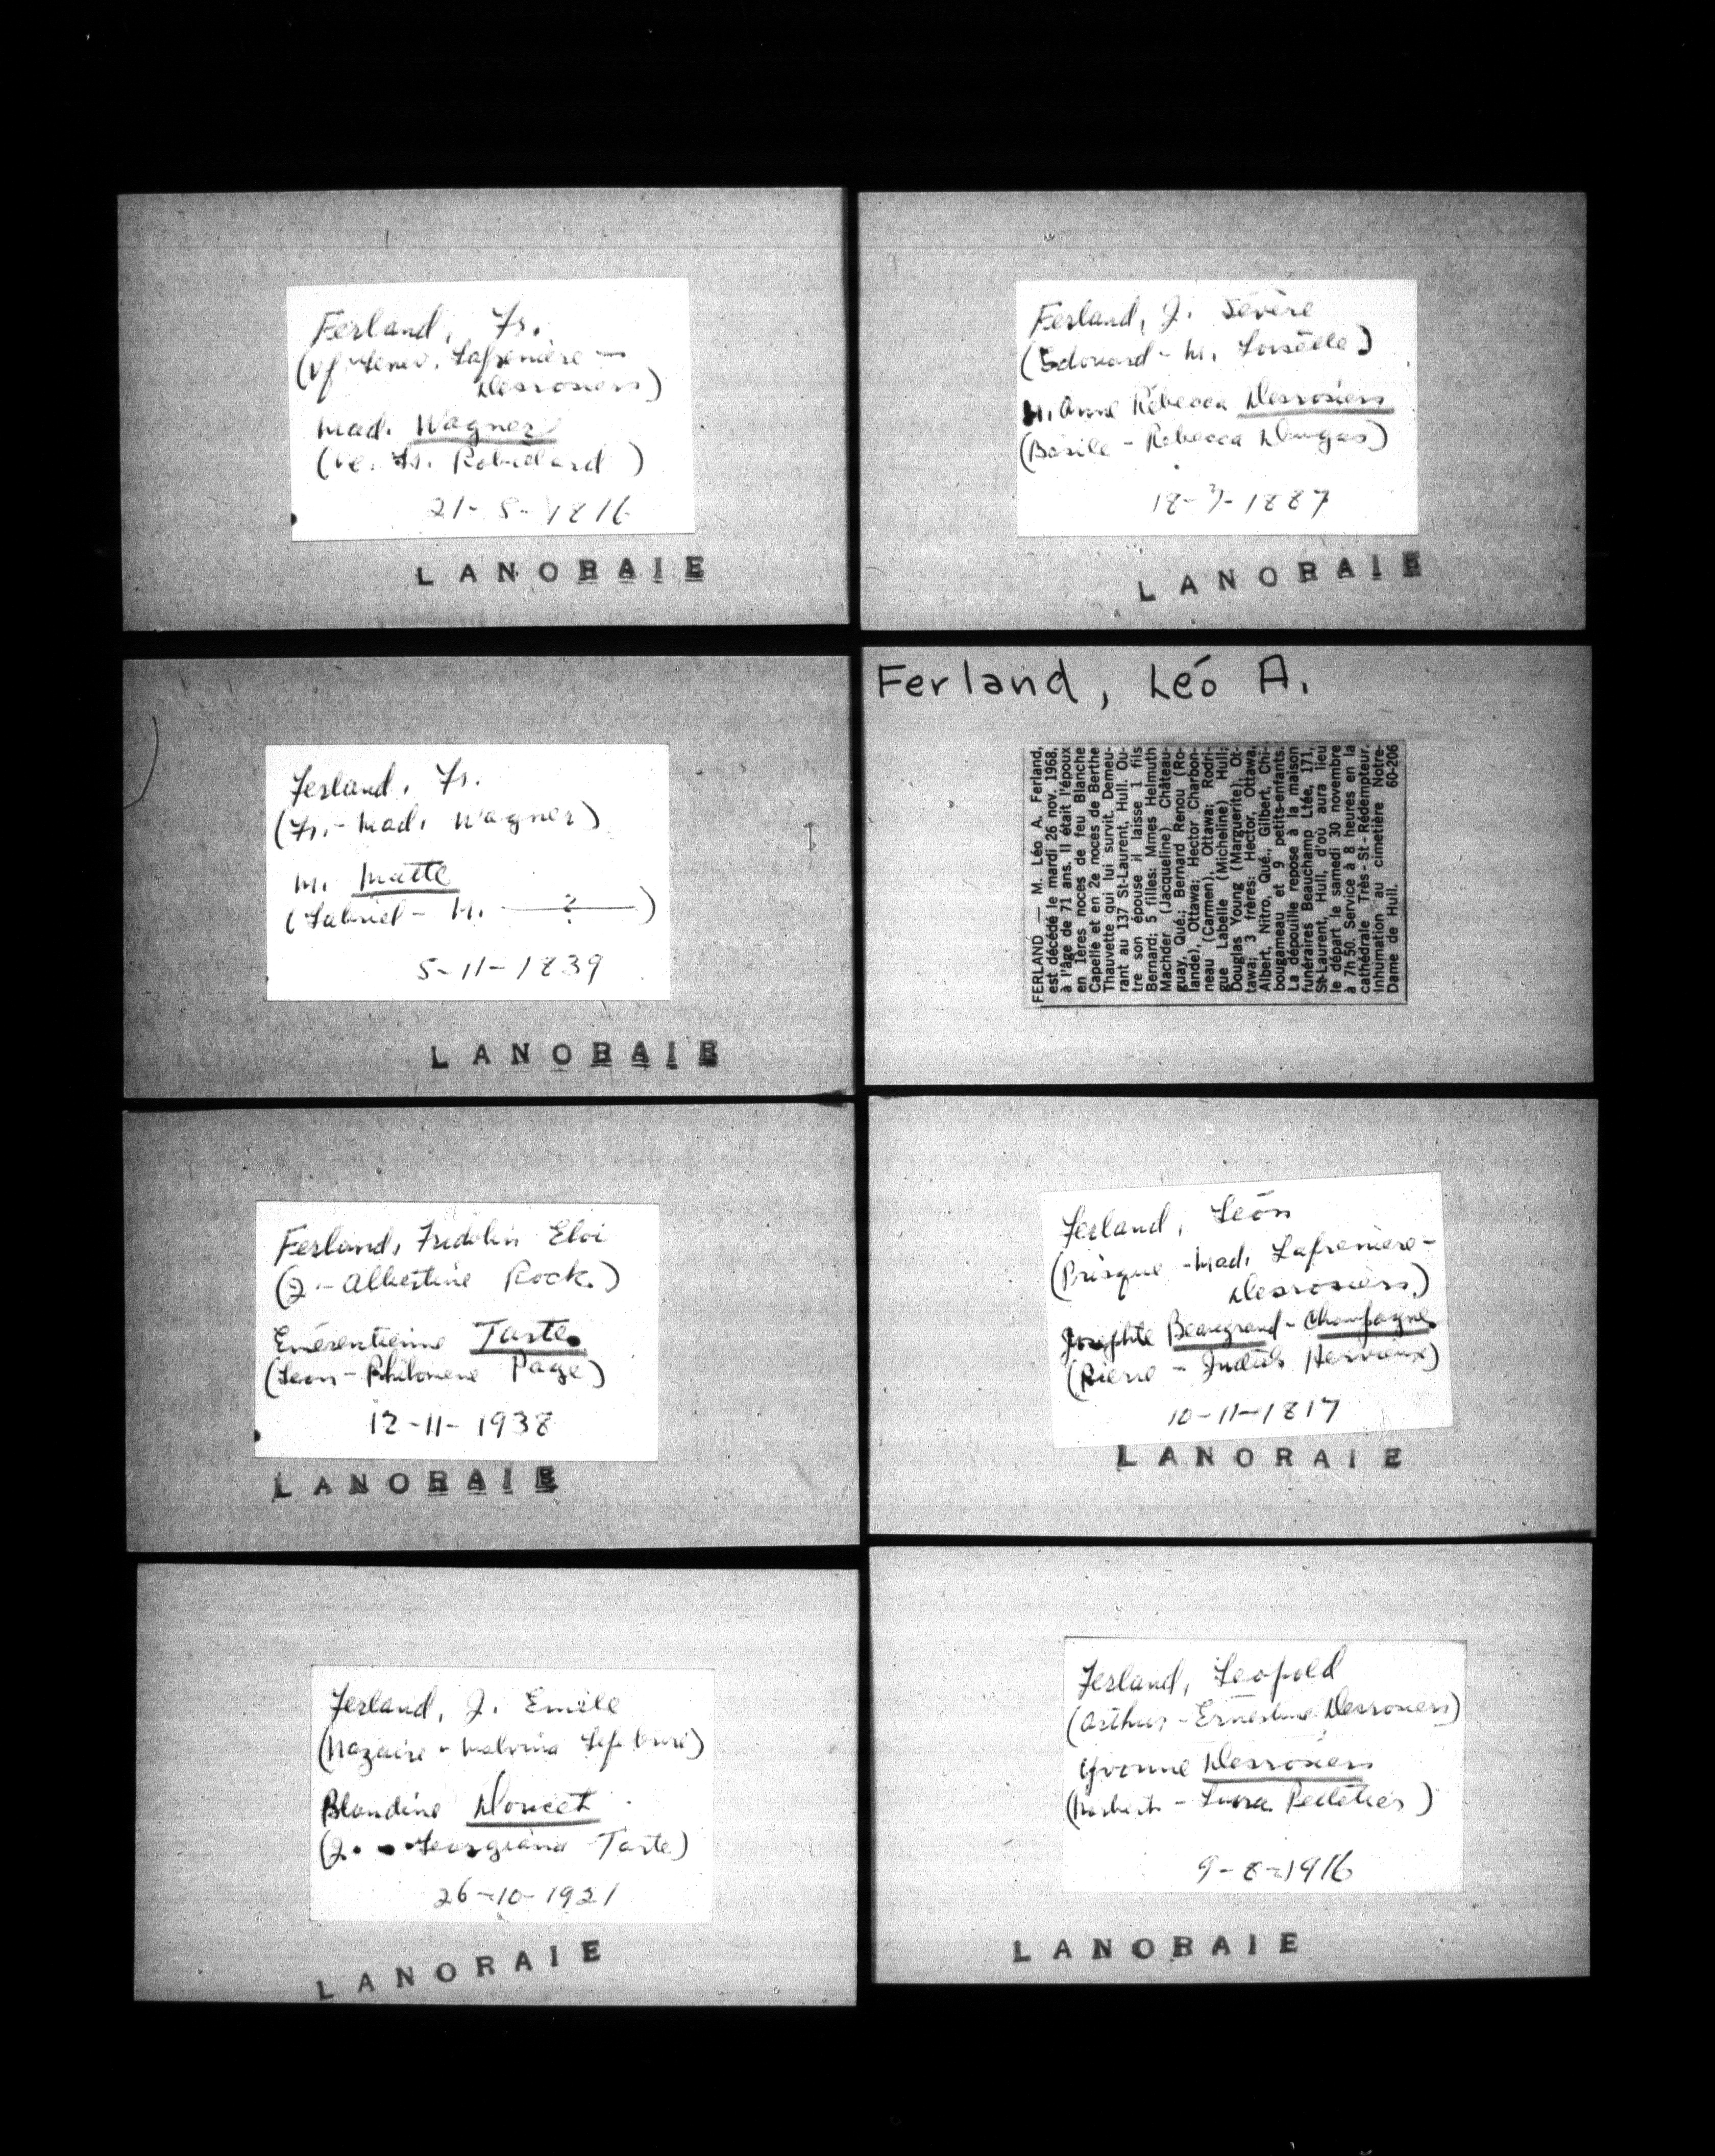 Ferland, Fr.
(Vf Genev. Lafrenière —
Desrosiers)
Mad. Wagner
(Ve. Fr. Robillard)
21-5-1816
LANORAIE
Ferland, Fr.
(Fr. - Mad. Wagner)
M. Matte
(Gabriel - M. — ? —)
5-11-1839
LANORAIE
Ferland, Fridolin Eloi
(J. - Albertine Rock.)
Emérentienne Taste
(Léon - Philomène Page)
12-11-1938
LANORAIE
Ferland, J. Emile
(Nazaire - Malvina Lefebvre)
Blandine Doucet
(J. - Georgiana Taste)
26-10-1921
LANORAIE
Ferland, J. Sévère
(Edouard - M. Loiselle)
M. Anne Rébecca Desrosiers
(Basile - Rebecca Dugas)
18-7-1887
LANORAIE
Ferland, Léo A.
FERLAND — M. Léo A. Ferland,
est décédé le mardi 26 nov. 1968,
à l'âge de 71 ans. Il était l'époux
en 1ères noces de feu Blanche
Capelle et en 2e noces de Berthe
Thauvette qui lui survit. Demeu-
rant au 137 St-Laurent, Hull. Ou-
tre son épouse il laisse 1 fils
Bernard; 5 filles: Mmes Helmuth
Machder (Jacqueline) Château-
guay, Qué.; Bernard Renou (Ro-
lande), Ottawa; Hector Charbon-
neau (Carmen), Ottawa; Rodri-
gue Labelle (Micheline) Hull;
Douglas Young (Marguerite), Ot-
tawa; 3 frères: Hector, Ottawa,
Albert, Nitro, Qué., Gilbert, Chi-
bougameau et 9 petits-enfants.
La dépouille repose à la maison
funéraires Beauchamp Ltée, 171,
St-Laurent, Hull, d'où aura lieu
le départ le samedi 30 novembre
à 7h 50. Service à 8 heures en la
cathédrale Très-St-Rédempteur.
Inhumation au cimetière Notre-
Dame de Hull. 60-206
Ferland, Léon
(Prisque - Mad. Lafrenière -
Desrosiers.)
Josephte Beaugrand - Champagne
(Pierre - Judith Hervieux)
10-11-1817
LANORAIE
Ferland, Leopold
(Arthur - Ernestine Desrosiers)
Yvonne Desrosiers
(Norbert - Pelletier)
9-8-1916
LANORAIE